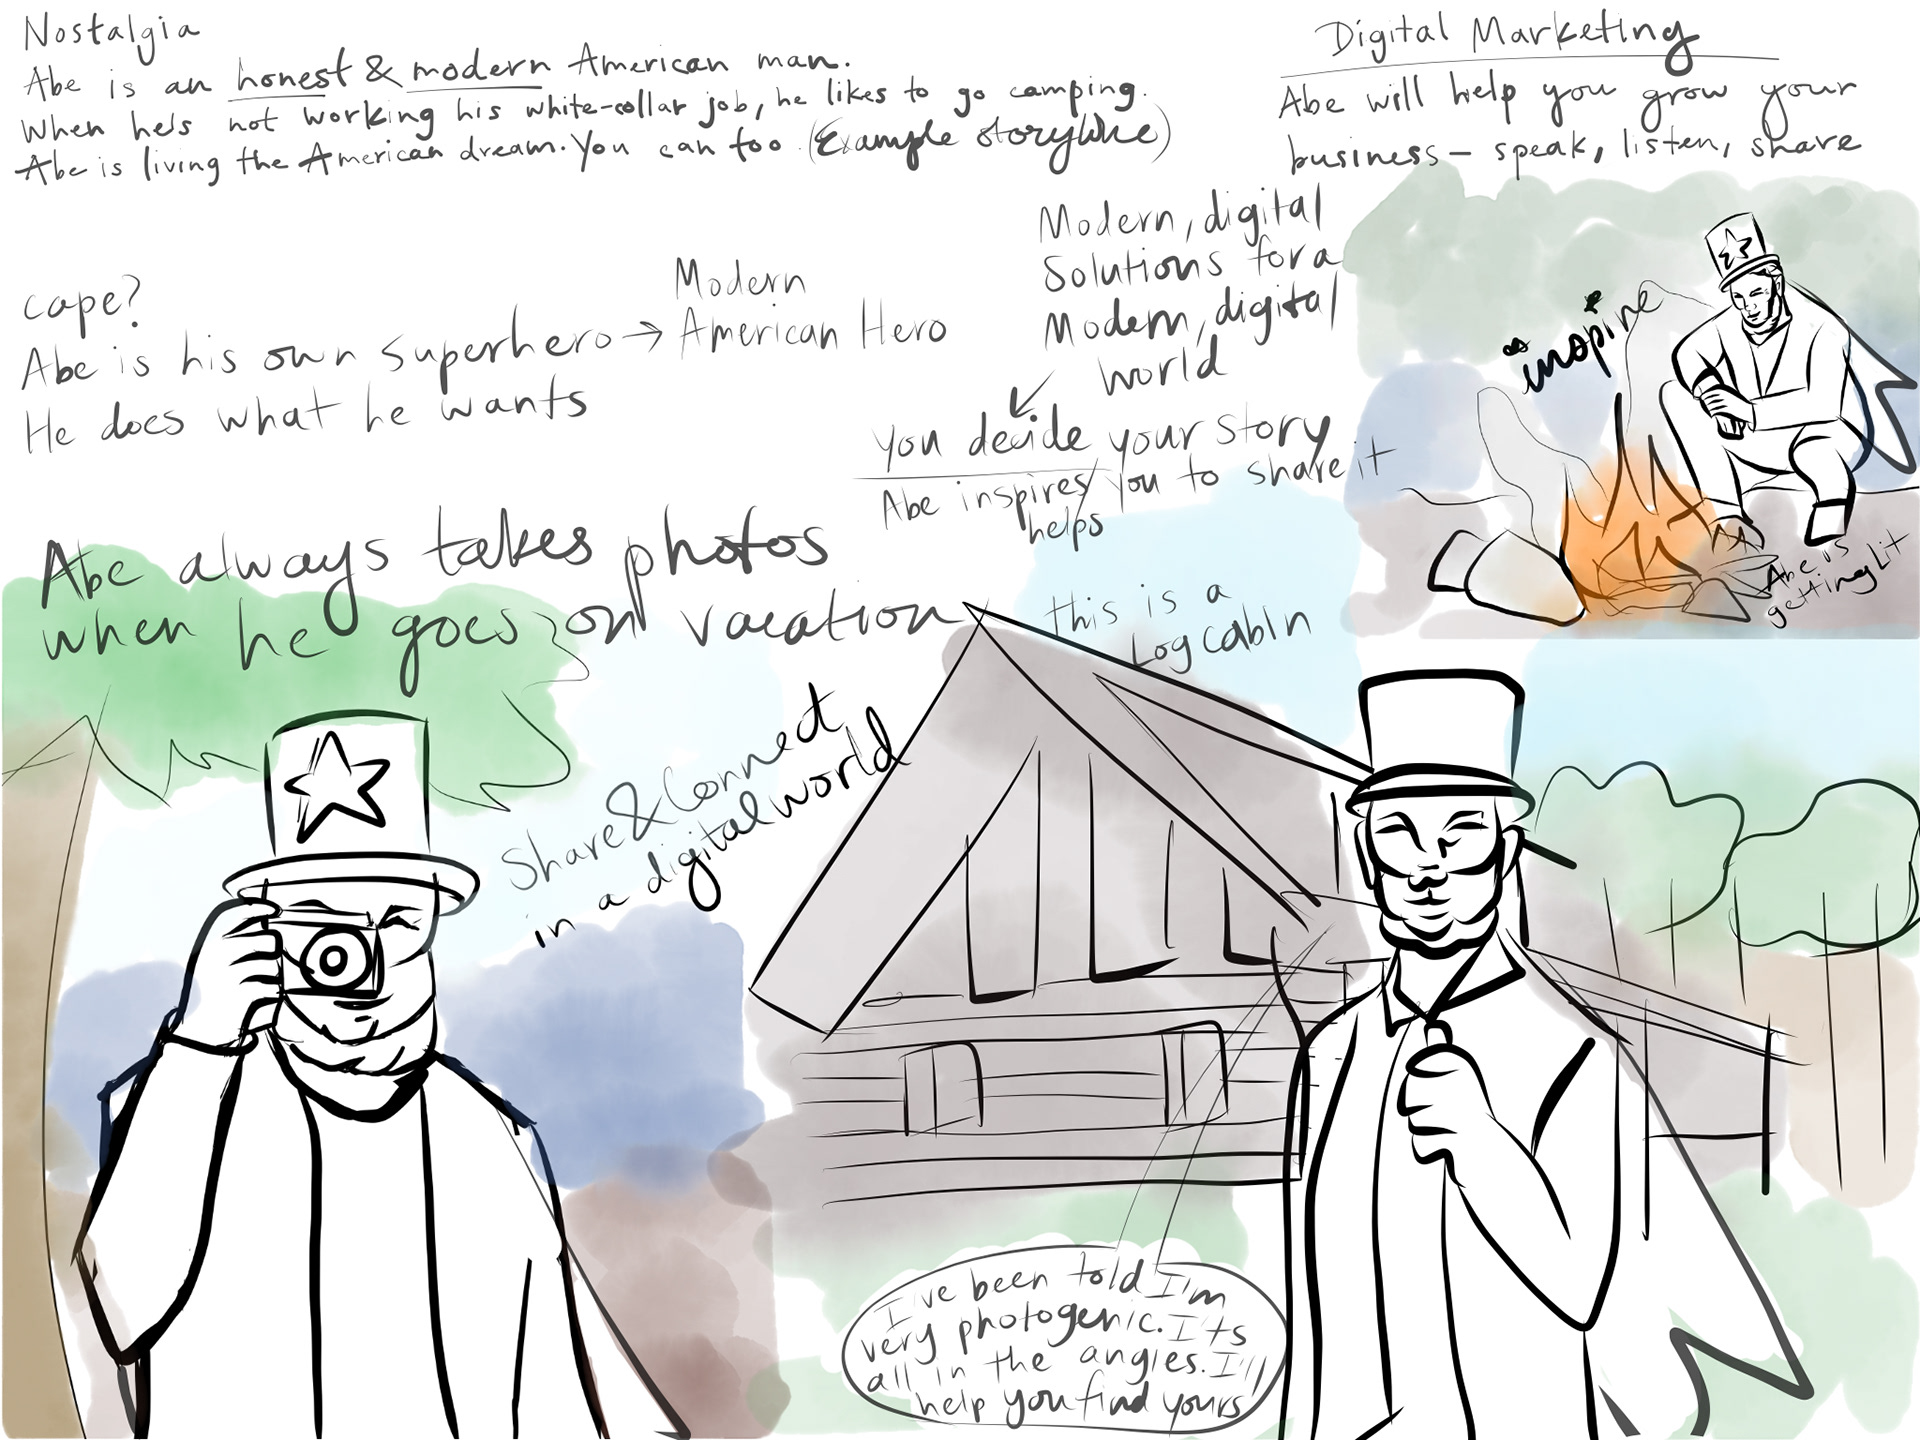 Nostalgia
Abe is an honest & modern American man.
When he's not working his white-collar job, he likes to go camping.
Abe is living the American dream. You can too. (Example storyline)
Digital Marketing
Abe will help you grow your
business - speak, listen, share
cape?
Abe is his own superhero → Modern
American Hero
He does what he wants
Modern, digital
Solutions for a
Modern, digital
world
you decide your story
Abe inspires you to share it
helps
inspire
Abe is
getting Lit
Abe always takes photos
when he goes on vacation
this is a
Log cabin
Share & Connect
in a digital world
I've been told I'm
very photogenic. It's
all in the angles. I'll
help you find yours